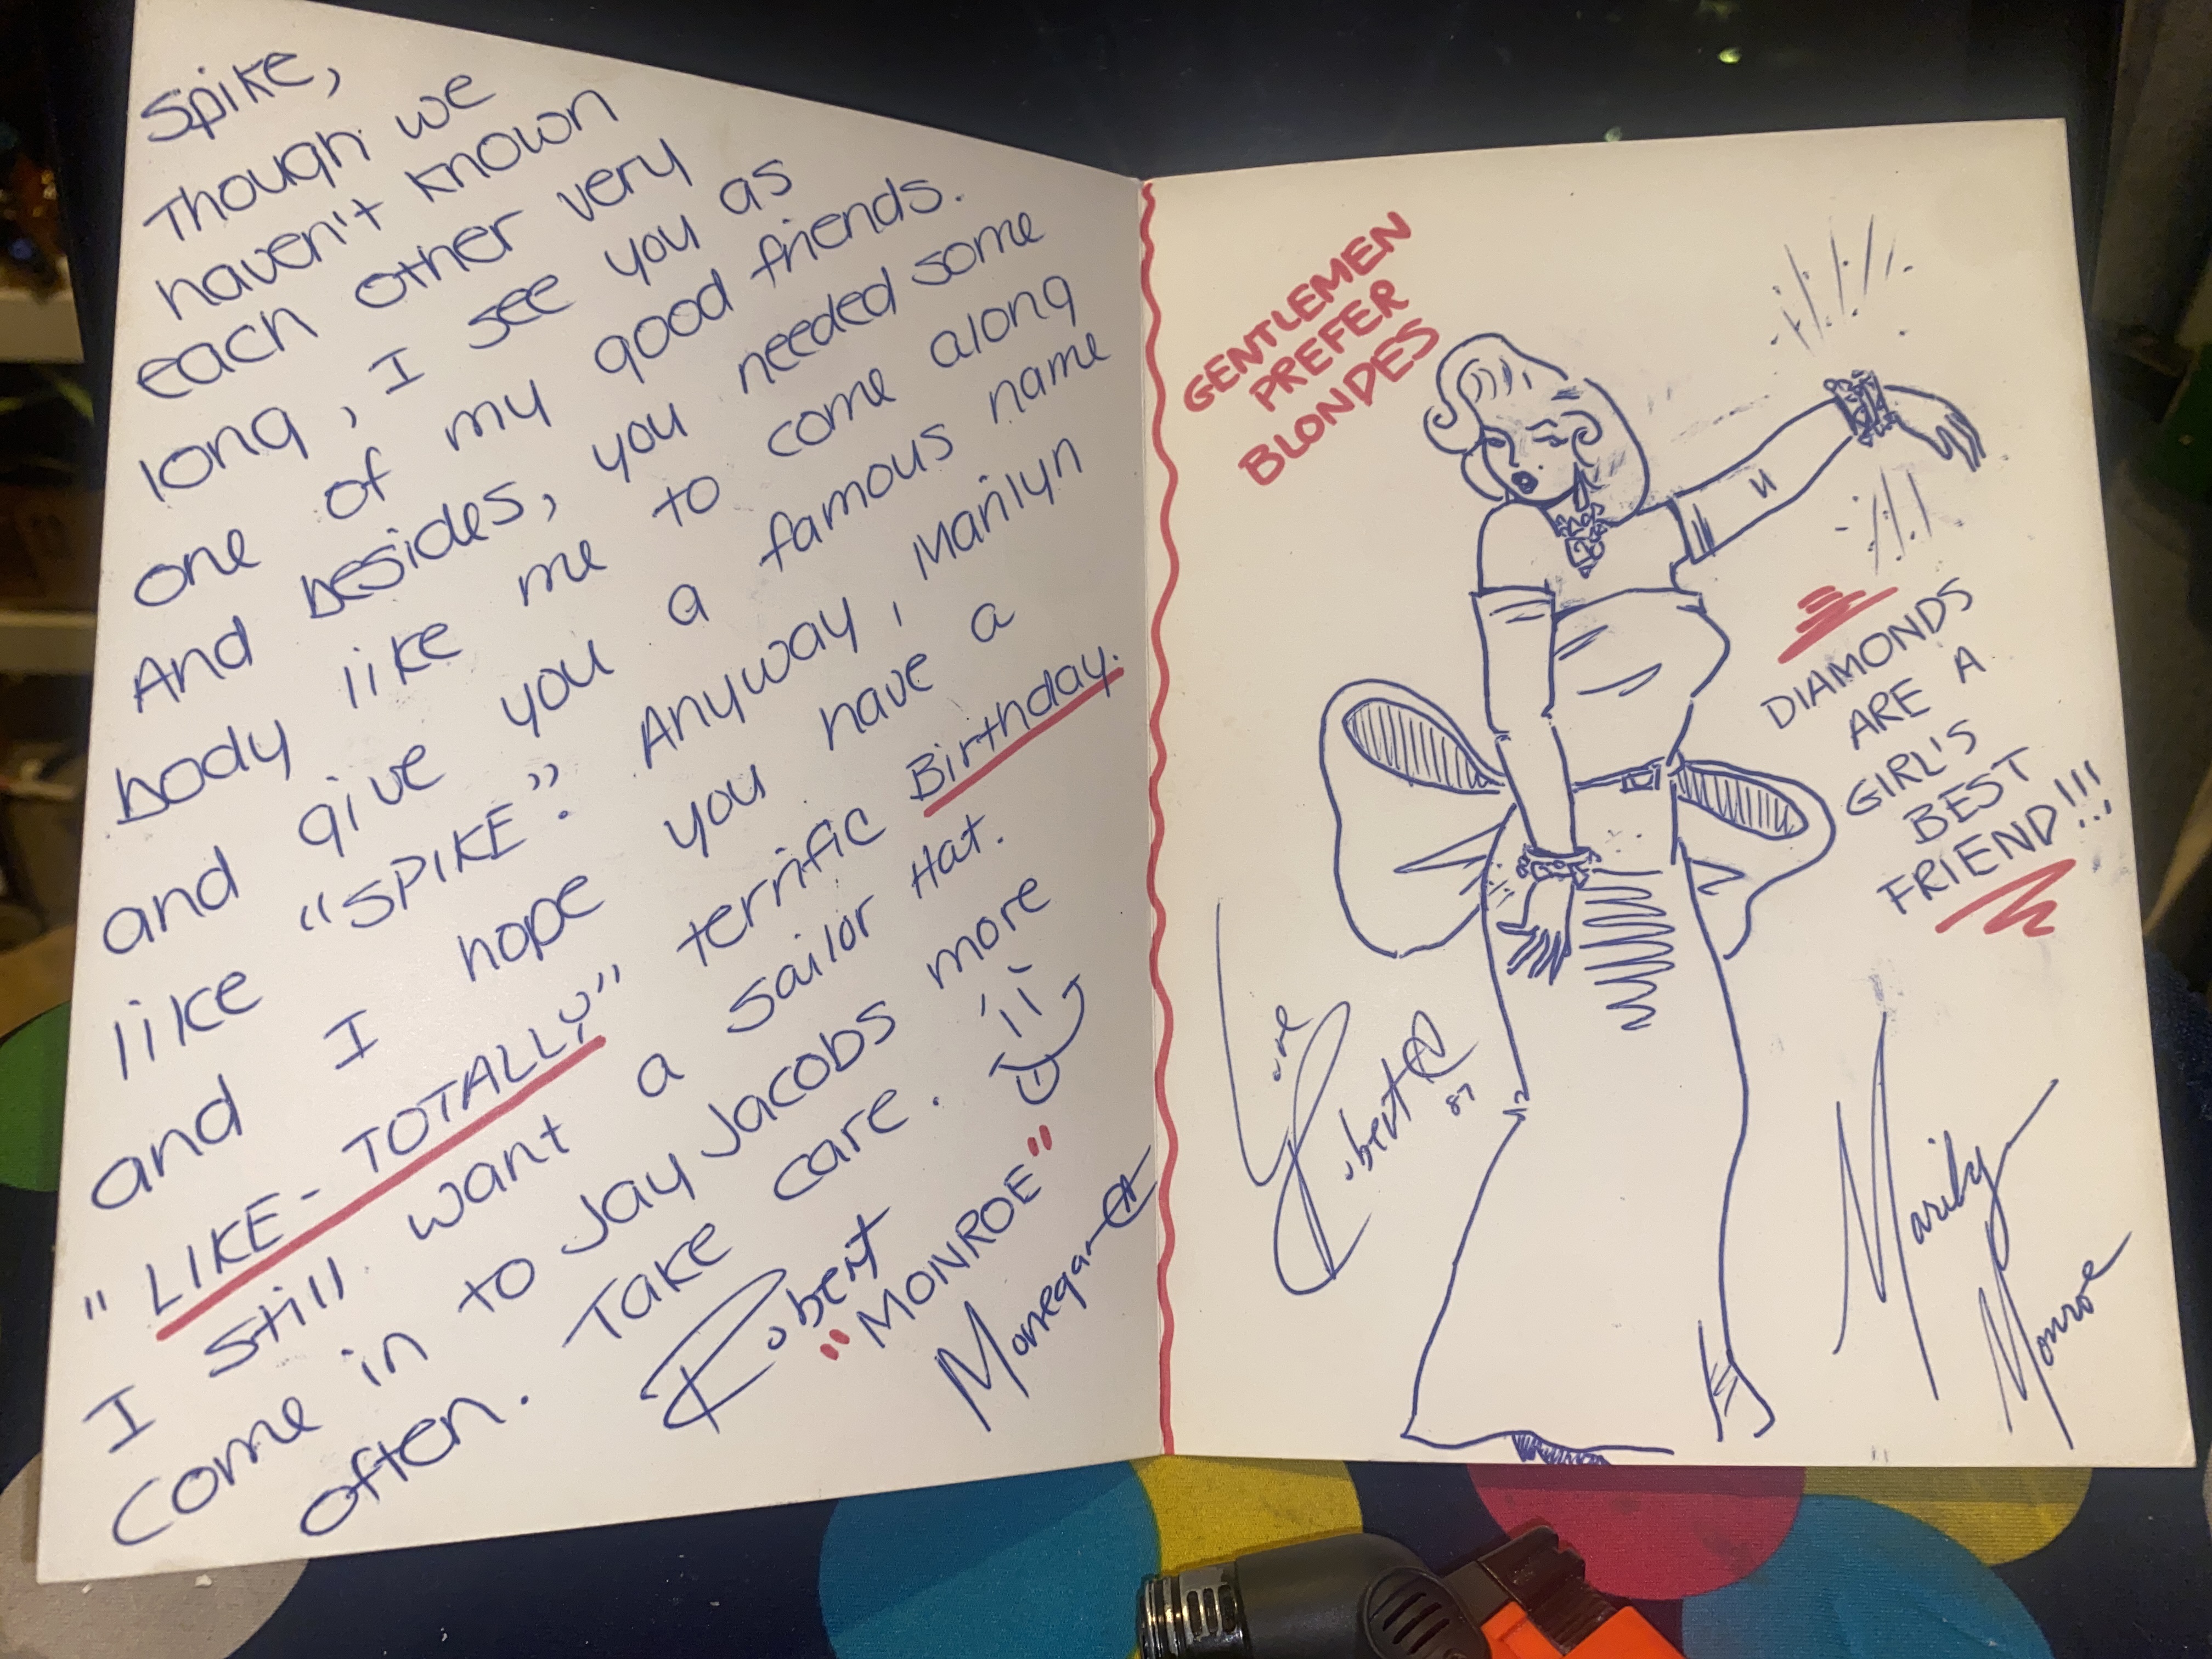 Spike,
Though we
haven't known
each other very
long, I see you as
one of my good friends.
And besides, you needed some
body like me to come along
and give you a famous name
like "SPIKE". Anyway, Marilyn
and I hope you have a
"LIKE-TOTALLY" terrific Birthday.
I still want a sailor Hat.
Come in to Jay Jacobs more
often. Take care.
Robert
"MONROE"
GENTLEMEN
PREFER
BLONDES
DIAMONDS
ARE A
GIRL'S
BEST
FRIEND!!!
Love
Robert
87
Marilyn
Monroe